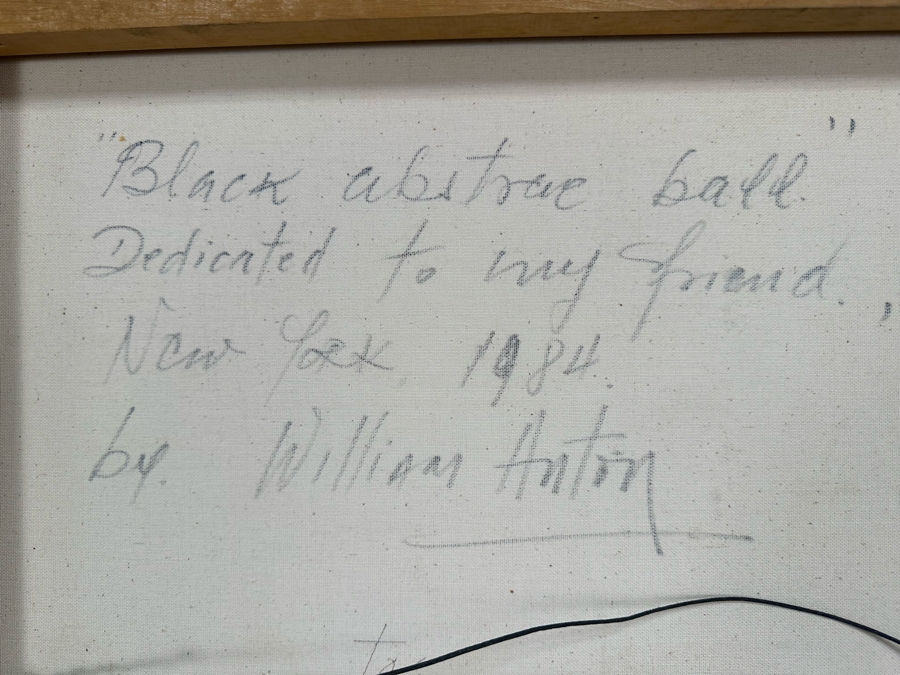 "Black abstrac ball."
Dedicated to my friend.
New York, 1984.
by. William Anton